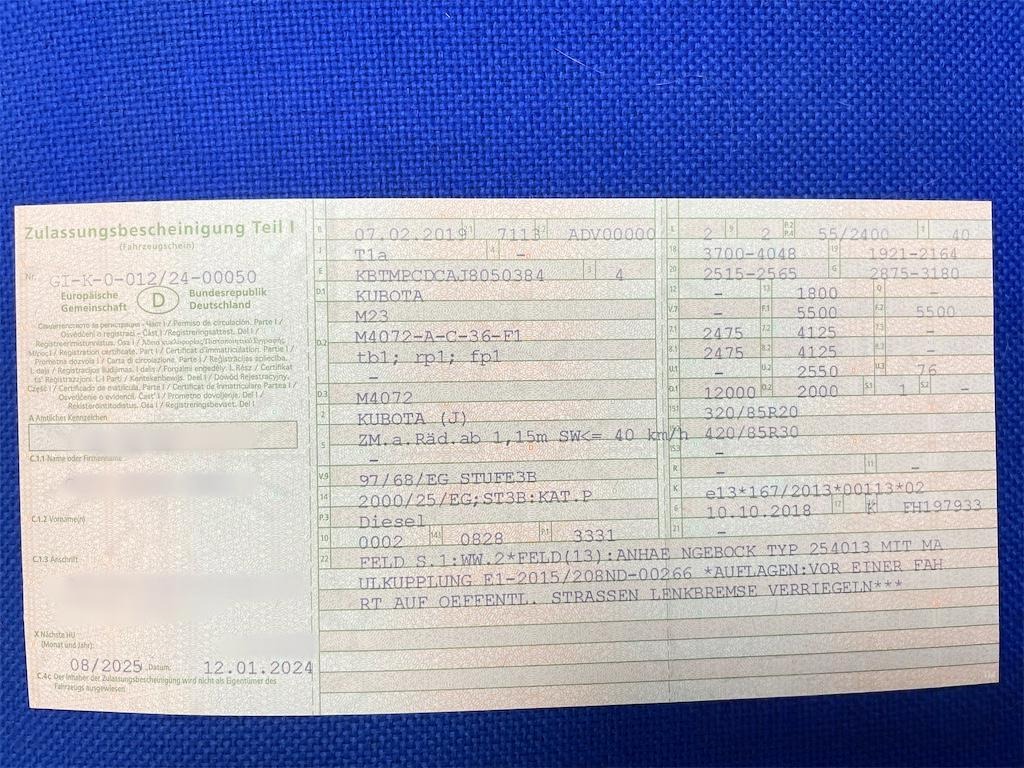 Zulassungsbescheinigung Teil I
(Fahrzeugschein)
Nr. GI-K-0-012/24-00050
Europäische Gemeinschaft
D
Bundesrepublik Deutschland
Permiso de circulación. Parte I /
Osvědčení o registraci - Část I / Registreringsattest. Del I /
Registreerimistunnistus. Osa I /
Registration certificate. Part I / Certificat d'immatriculation. Partie I /
Prometna dozvola I / Carta di circolazione. Parte I / Reģistrācijas apliecība.
I. daļa / Registracijos liudijimas. I dalis / Forgalmi engedély. I. Rész / Ċertifikat
ta' Reġistrazzjoni. L-I Parti / Kentekenbewijs. Deel I / Dowód Rejestracyjny.
Część I / Certificado de matrícula. Parte I / Certificat de înmatriculare Partea I /
Osvedčenie o evidencii. Časť I / Prometno dovoljenje. Del I /
Rekisteröintitodistus. Osa I / Registreringsbeviset. Del I
A Amtliches Kennzeichen
C.1.1 Name oder Firmenname
C.1.2 Vorname(n)
C.1.3 Anschrift
X Nächste HU
(Monat und Jahr):
08/2025 Datum: 12.01.2024
C.4c Der Inhaber der Zulassungsbescheinigung wird nicht als Eigentümer des
Fahrzeugs ausgewiesen
B 07.02.2019 2.1 7113 2.2 ADV00000
J T1a 4 -
E KBTMPCDCAJ8050384 3 4
D.1 KUBOTA
M23
D.2 M4072-A-C-36-F1
tb1; rp1; fp1
-
D.3 M4072
2 KUBOTA (J)
5 ZM.a.Räd.ab 1,15m SW<= 40 km/h
-
V.9 97/68/EG STUFE3B
14 2000/25/EG;ST3B:KAT.P
P.3 Diesel
10 0002 14.1 0828 P.1 3331
L 2 9 2 P.2 P.4 55/2400 T 40
18 3700-4048 19 1921-2164
20 2515-2565 G 2875-3180
12 - 13 1800 Q
V.7 - F.1 5500 F.2 5500
7.1 2475 7.2 4125 7.3 -
8.1 2475 8.2 4125 8.3 -
U.1 - U.2 2550 U.3 76
O.1 12000 O.2 2000 S.1 1 S.2 -
15.1 320/85R20
420/85R30
15.3 -
R - 11 -
K e13*167/2013*00113*02
6 10.10.2018 17 K FH197933
21 -
22 FELD S.1:WW.2*FELD(13):ANHAE NGEBOCK TYP 254013 MIT MA
ULKUPPLUNG E1-2015/208ND-00266 *AUFLAGEN:VOR EINER FAH
RT AUF OEFFENTL. STRASSEN LENKBREMSE VERRIEGELN***